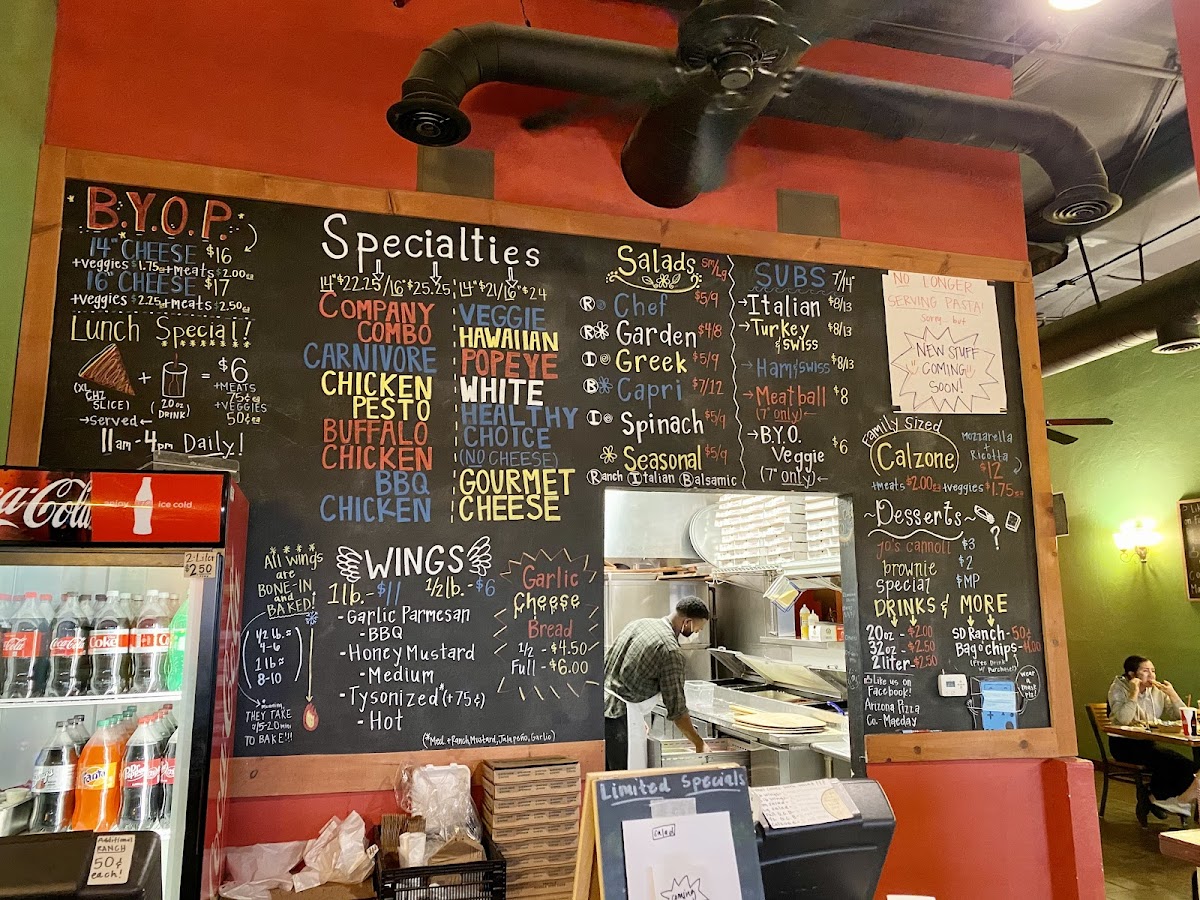 B.Y.O.P.
14" CHEESE $16
+veggies $1.75ea +Meats $2.00ea
16" CHEESE $17
+veggies $2.25 +Meats $2.50ea
Lunch Special!
(XL CHZ SLICE) + (20oz DRINK) = $6
+MEATS 75¢ea
+VEGGIES 50¢ea
→Served←
11am-4pm Daily!
Specialties
14" $22.25/16" $25.25
COMPANY
COMBO
CARNIVORE
CHICKEN
PESTO
BUFFALO
CHICKEN
BBQ
CHICKEN
14" $21/16" $24
VEGGIE
HAWAIIAN
POPEYE
WHITE
HEALTHY
CHOICE
(NO CHEESE)
GOURMET
CHEESE
Salads Sm/Lg
R Chef $5/9
R Garden $4/8
I Greek $5/9
B Capri $7/12
I Spinach $5/9
Seasonal $5/9
Ranch Italian Balsamic
SUBS 7"/14"
→Italian $8/13
→Turkey & Swiss $8/13
→Ham/Swiss $8/13
→Meatball $8
(7" only)←
→B.Y.O.
Veggie $6
(7" only)←
NO LONGER
SERVING PASTA!
Sorry... but
NEW STUFF
"COMING"
SOON!
Family Sized
Calzone
Mozzarella
+
Ricotta
$12
+meats $2.00ea +veggies $1.75ea
~Desserts~
Jo's cannoli $3
brownie $2
Special $MP
DRINKS & MORE
20oz - $2.00
32oz - $2.50
2 liter - $2.50
SD Ranch - 50¢
Bag o chips - $1.00
(Free Drink w/ Purchase!)
Like us on
Facebook!
Arizona Pizza
Co-Maeday
Wear a
mask
plz!
All wings
are
BONE-IN
and
BAKED!
1/2 lb. =
4-6
1 lb =
8-10
THEY TAKE
15-20 min
TO BAKE!!!
WINGS
1lb.-$11 1/2lb.-$6
-Garlic Parmesan
-BBQ
-Honey Mustard
-Medium
-Tysonized*(+75¢)
-Hot
(*Med + Ranch, Mustard, Jalapeño, Garlic)
Garlic
Cheese
Bread
1/2 - $4.50
Full - $6.00
Coca-Cola
enjoy ice cold
2-Liter
$2.50
Coke
Fanta
Dr Pepper
Additional
RANCH
50¢
each!
Limited Specials
Salad
coming